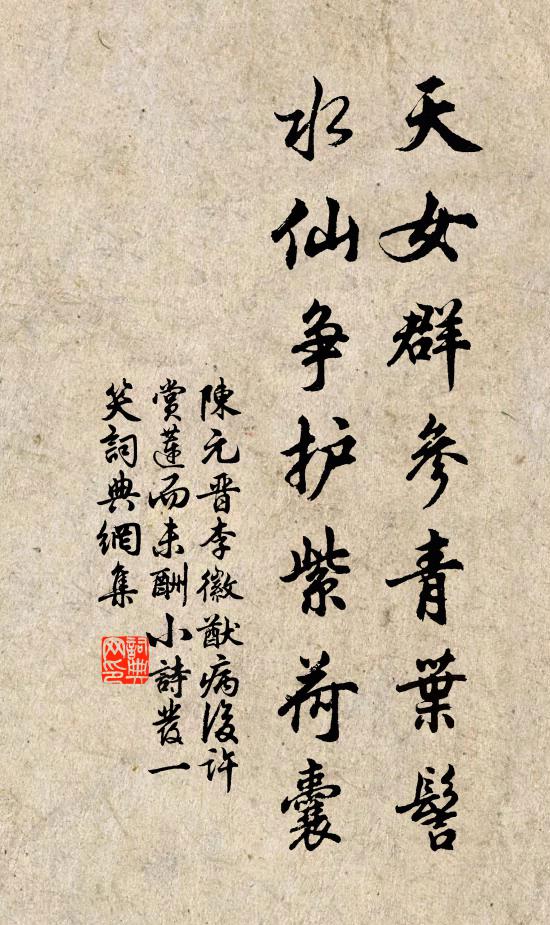 天女群參青葉髻
水仙争护紫荷囊
陳元晋李徽猷病後許
賞蓮而未酬小詩發一
笑詞典網集
詞典網印